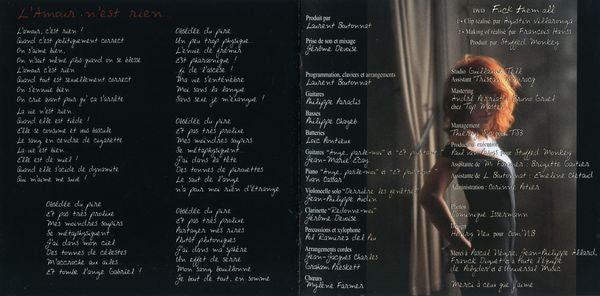 L'Amour n'est rien...
L'amour, c'est rien !
Quand c'est politiquement correct
On s'aime bien,
On n'sait même pas quand on se blesse
L'amour c'est rien
Quand tout est sexuellement correct
On s'ennuie bien
On crie avant pour qu' ça s'arrête
La vie n'est rien
Quand elle est tiède !
Elle se consume et vous bascule
Le sang en cendre de cigarette
La vie est bien
Elle est de miel !
Quand elle s'acide de dynamite
Qui m'aime me suive !
Obsédée du pire
Et pas très prolixe
Mes moindres soupirs
Se métaphysiquent
J'ai dans mon ciel
Des tonnes de célestes
M'accroche aux ailes
Et tombe l'ange Gabriel !
Obsédée du pire
Un peu trop physique
L'envie de frémir
Est pharaonique !
fi de l'ascèse !
Ma vie s'enténèbre
Moi sans la langue
Sans sexe je m'exsangue !
Obsédée du pire
Et pas très prolixe
Mes moindres soupirs
Se métaphysiquent
J'ai dans la tête
Des tonnes de pirouettes
Le saut de l'ange
n'a pour moi rien d'étrange
Obsédée du pire
Et pas très prolixe
Partager mes rires
Plutôt platoniques
J'ai dans ma sphère
Un effet de serre
Mon sang bouillonne
Je bout de tout, en somme
Produit par
Laurent Boutonnat
Prise de son et mixage
Jérôme Devoise
Programmation, claviers et arrangements
Laurent Boutonnat
Guitares
Philippe Paradis
Basses
Philippe Chayeb
Batteries
Loïc Pontieux
Guitares "Ange, parle-moi" & "Et pourtant"
Jean-Marie Ecay
Piano "Ange, parle-moi" & "Et pourtant"
Yvan Cassar
Violoncelle solo "Derrière les fenêtres"
Jean-Philippe Audin
Clarinette "Redonne-moi"
Jérôme Devoise
Percussions et xylophone
Pol Ramirez del Piu
Arrangements cordes
Jean-Jacques Charles
Graham Preskett
Chœurs
Mylène Farmer
DVD Fuck them all
1 - Clip réalisé par Agustin Villaronga
2 - Making of réalisé par François Hanss
Produit par Stuffed Monkey
Studio Guillaume Tell
Assistant Tristan
Mastering
André Perriat & Bruno Gruel
chez Top Master
Management
Thierry Suc pour TS3
Production exécutive
Paul van Parys pour Stuffed Monkey
Assistante de M. Farmer : Brigitte Gautier
Assistante de L. Boutonnat : Emeline Chetaud
Administration : Corinne Potier
Photos
Dominique Issermann
Design
Henry Neu pour Com'N.B
Merci à Pascal Nègre, Jean-Philippe Allard,
Franck Duquet & à toute l'équipe
de Polydor & d'Universal Music
Merci à ceux que j'aime